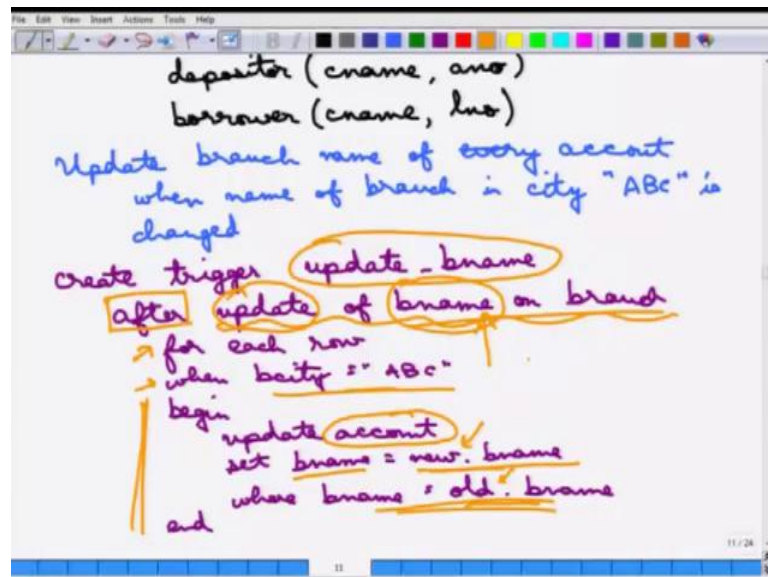 File Edit View Insert Actions Tools Help
depositor (cname, ano)
borrower (cname, lno)
Update branch name of every account
when name of branch in city "ABC" is
changed
create trigger update_bname
after update of bname on branch
for each row
when bcity = "ABC"
begin
update account
set bname = new. bname
where bname = old. bname
end
11 / 24
11